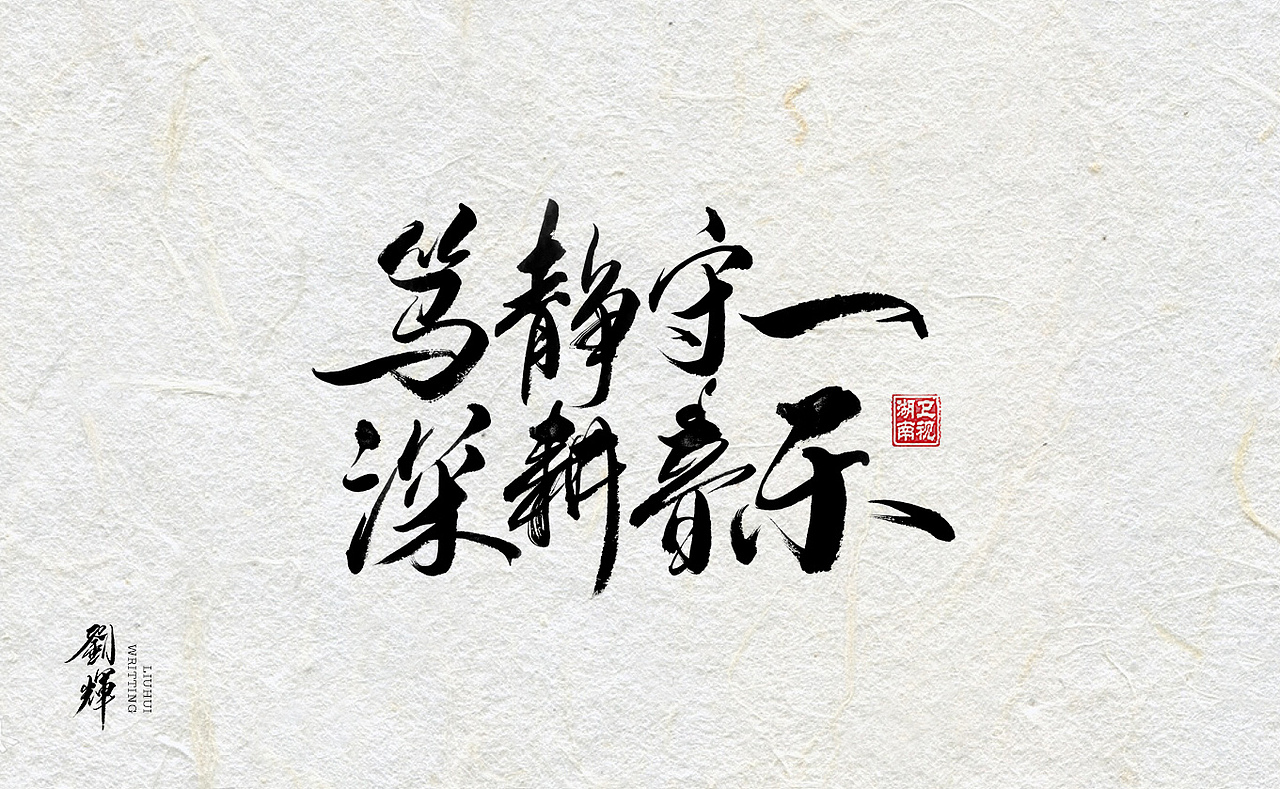 笃静守一
深耕音乐
湖南卫视
劉輝
LIUHUI
WRITTING